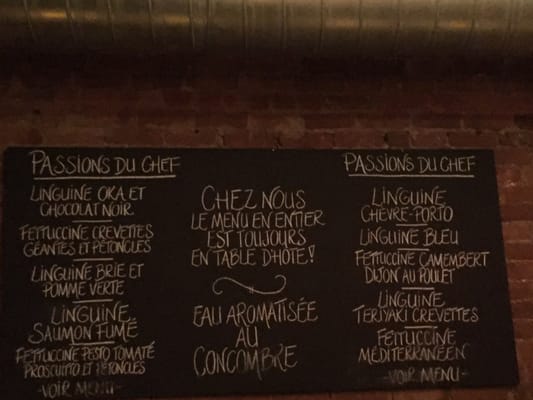 PASSIONS DU CHEF
LINGUINE OKA ET
CHOCOLAT NOIR
FETTUCCINE CREVETTES
GÉANTES ET PÉTONCLES
LINGUINE BRIE ET
POMME VERTE
LINGUINE
SAUMON FUMÉ
FETTUCCINE PESTO TOMATÉ
PROSCIUTTO ET PÉTONCLES
-VOIR MENU-
CHEZ NOUS
LE MENU EN ENTIER
EST TOUJOURS
EN TABLE D'HÔTE!
EAU AROMATISÉE
AU
CONCOMBRE
PASSIONS DU CHEF
LINGUINE
CHÈVRE-PORTO
LINGUINE BLEU
FETTUCCINE CAMEMBERT
DIJON AU POULET
LINGUINE
TERIYAKI CREVETTES
FETTUCCINE
MÉDITERRANÉEN
-VOIR MENU-